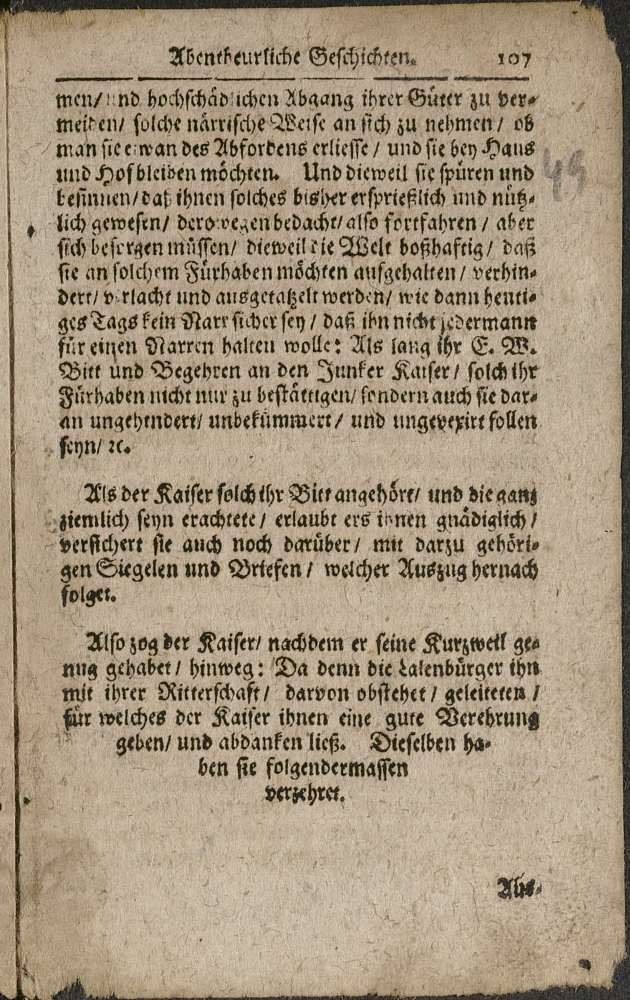 Abentheurliche Geschichten. 107
men/ und hochschädlichen Abgang ihrer Güter zu ver-
meiden/ solche närrische Weise an sich zu nehmen / ob
man sie etwan des Abfordens erliesse / und sie bey Haus
und Hof bleiben möchten. Und dieweil sie spüren und
besinnen/ daß ihnen solches bisher ersprießlich und nütz-
lich gewesen/ derowegen bedacht/ also fortfahren / aber
sich besorgen müssen/ dieweil die Welt boßhaftig / daß
sie an solchem Fürhaben möchten aufgehalten / verhin-
dert/ verlacht und ausgetatzelt werden/ wie dann heuti-
ges Tags kein Narr sicher sey / daß ihn nicht jedermann
für einen Narren halten wolle: Als lang ihr E. W.
Bitt und Begehren an den Junker Kaiser / solch ihr
Fürhaben nicht nur zu bestättigen/ sondern auch sie dar-
an ungehindert/ unbekümmert / und ungevexirt sollen
seyn/ ꝛc.
Als der Kaiser solch ihr Bitt angehört/ und die ganz
ziemlich seyn erachtete / erlaubt ers ihnen gnädiglich /
versichert sie auch noch darüber / mit darzu gehöri-
gen Siegelen und Briefen / welcher Auszug hernach
folget.
Also zog der Kaiser/ nachdem er seine Kurzweil ge-
nug gehabet / hinweg: Da denn die Lalenbürger ihn
mit ihrer Ritterschaft / darvon obstehet / geleiteten /
für welches der Kaiser ihnen eine gute Verehrung
geben/ und abdanken ließ. Dieselben ha-
ben sie folgendermassen
verzehret.
49